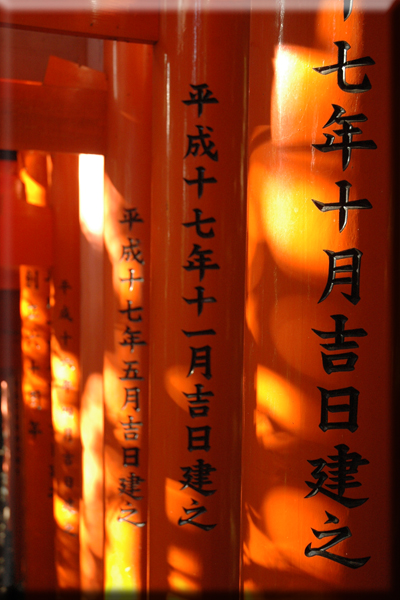 七年十月吉日建之
平成十七年十一月吉日建之
平成十七年五月吉日建之